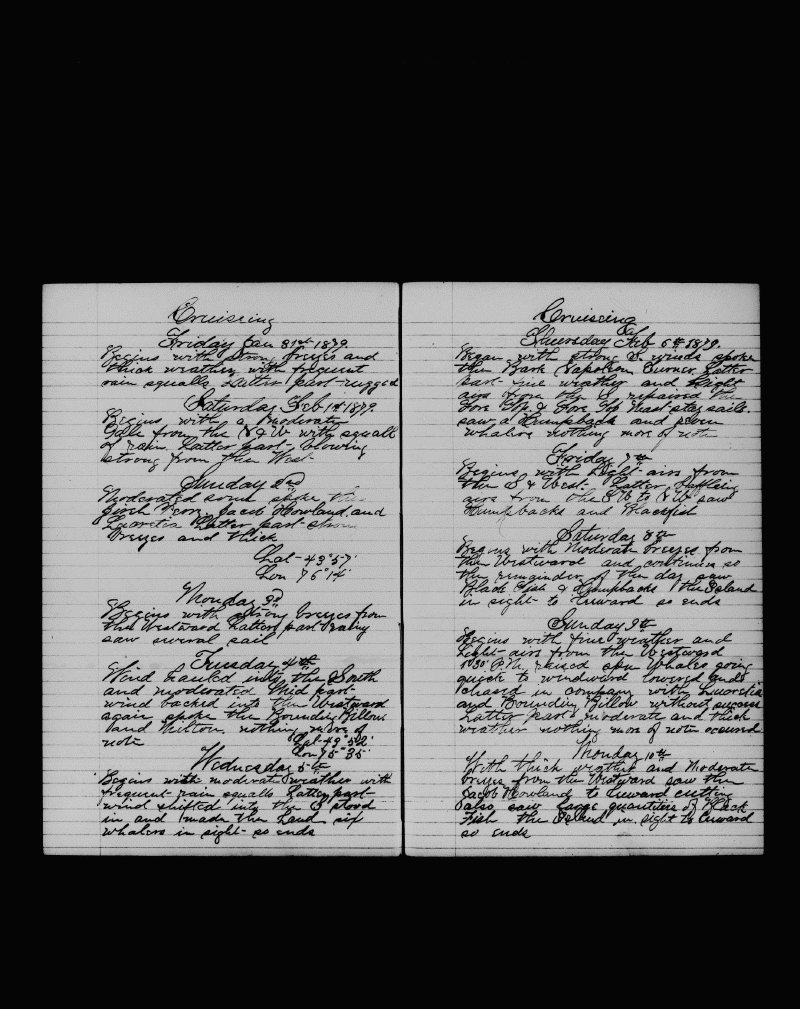 Cruising
Friday Jan 31st 1879
Begins with strong breezes and
thick weather with frequent
rain squalls Latter part rugged
Saturday Feb 1st 1879
Begins with a moderate
Gale from the N & W with squalls
of rain Latter part blowing
strong from the West
Sunday 2nd
Moderated some spoke the
Jacob Howland and
Lucretia Latter part strong
breezes and thick
Lat 43° 57'
Lon 76° 14'
Monday 3d
Begins with strong breezes from
the Westward Latter part
saw several sail
Tuesday 4th
Wind hauled into the South
and moderated Mid part
wind backed into the Westward
again spoke the Bounding Billow
and Milton nothing more of
note
Lat 43° 52'
Lon 75° 35'
Wednesday 5th
Begins with moderate weather with
frequent rain squalls Latter part
wind shifted into the S stood
in and made the Land six
whalers in sight so ends
Cruising
Thursday Feb 6th 1879.
Began with strong S. winds spoke
the Bark Napoleon Turner Latter
part fine weather and light
airs from the S repaired the
Fore Top & Fore Top Mast stay sails.
saw a Humpback and
whalers nothing more of note
Friday 7th
Begins with Light airs from
the S & West Latter Baffling
airs from the SW to NW saw
Humpbacks and Blackfish
Saturday 8th
Begins with Moderate breezes from
the Westward and continues so
the remainder of the day saw
Black Fish & Humpbacks the Island
in sight to leeward so ends
Sunday 9th
Begins with fine weather and
Light airs from the Westward
P.M. raised Whales going
quick to windward lowered and
chased in company with Lucretia
and Bounding Billow without success
Latter part moderate and thick
weather nothing more of note occured
Monday 10th
With thick weather and Moderate
breezes from the Westward saw the
Jacob Howland to leeward cutting
also saw large quantities of Black
Fish the Island in sight to leeward
so ends